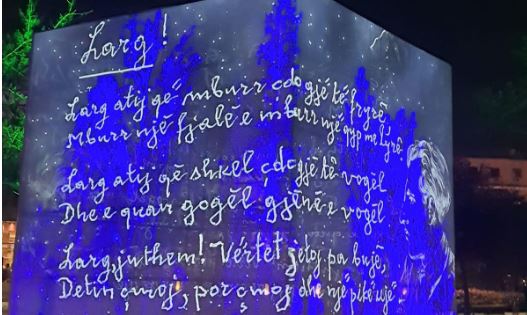 Larg!
Larg atij që mburr cdo gjë të fryrë
Mburr një fjalë e mburr një gyp me lyrë.
Larg atij që shkel cdo gjë të vogël
Dhe e quan gogël gjënë e vogël
Larg, ju them! Vërtet jetoj pa bujë,
Detin çmoj, por çmoj dhe një pikë ujë